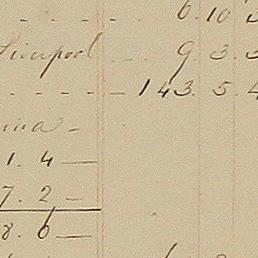 - - - - 6. 10
Liverpool - - 9. 3.
- - - - - 143. 5. 4
-
1. 4 —
7. 2 —
8. 6 —